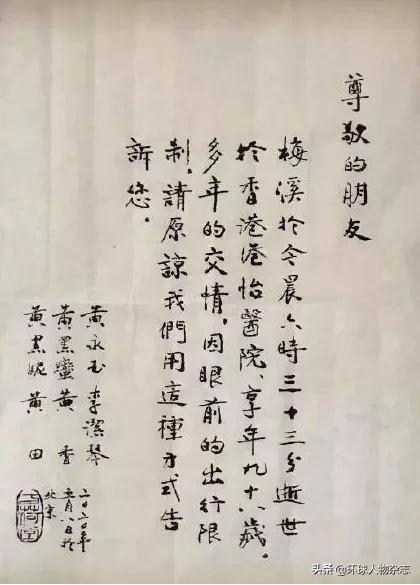 尊敬的朋友
梅溪於今晨六時三十三分逝世
於香港港怡醫院、享年九十八歲。
多年的交情,因眼前的出行限
制,請原諒我們用這種方式告
訴您。
黃永玉 李潔琴
黃黑蠻 黃香
黃黑妮 黃田
二〇二〇年
五月八日於
北京
头条 @环球人物杂志